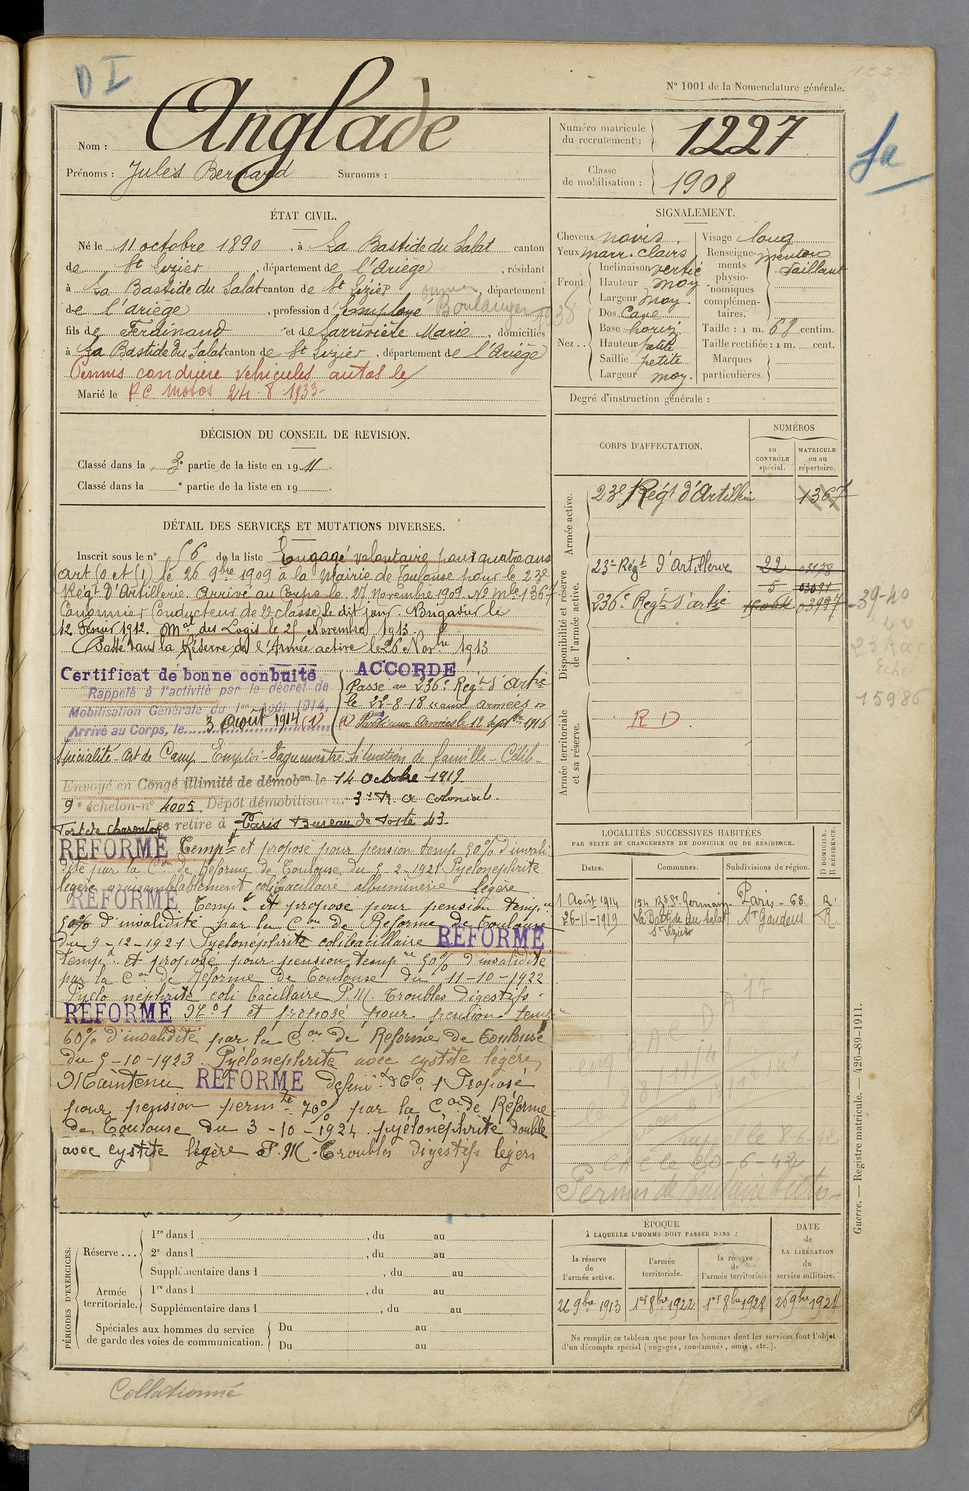 D I
N° 1001 de la Nomenclature générale.
Nom : Anglade
Prénoms : Jules Bernard Surnoms :
Numéro matricule du recrutement : 1227
Classe de mobilisation : 1908
ÉTAT CIVIL.
Né le 11 octobre 1890, à La Bastide du Salat canton
de St Lizier, département de l'Ariège, résidant
à La Bastide du Salat canton de St Lizier, département
de l'ariège, profession d'employé Boulanger
fils de Ferdinand et de Larrivière Marie, domiciliés
à La Bastide du Salat canton de St Lizier, département de l'Ariège
Permis conduire vehicules autos le
Marié le PC motos 24.8.1933
SIGNALEMENT.
Cheveux noirs.
Yeux marr. clairs
Front. Inclinaison vertic
Hauteur moy
Largeur moy.
Nez. Dos Cave
Base horiz.
Hauteur petite
Saillie petite
Largeur moy.
Visage long
Renseignements physionomiques complémentaires. menton saillant
Taille : 1 m. 68 centim.
Taille rectifiée : 1 m. cent.
Marques particulières.
Degré d'instruction générale :
DÉCISION DU CONSEIL DE REVISION.
Classé dans la 3e partie de la liste en 1911.
Classé dans la ° partie de la liste en 19
DÉTAIL DES SERVICES ET MUTATIONS DIVERSES.
Inscrit sous le n° 56 de la liste Engagé volontaire pour quatre ans
art 50 et 51) le 26 9bre 1909 à la Mairie de Toulouse pour le 23e
Régt d'Artillerie. Arrivé au Corps le 27 Novembre 1909. No mle 1367
Canonnier Conducteur de 2e classe le dit jour Brigadier le
12 Février 1912. Mal des Logis le 25 Novembre 1913.
Passé dans la Réserve de l'Armée active le 26 Novbre 1913
Certificat de bonne conduite ACCORDÉ
Rappelé à l'activité par le décret de
Mobilisation Générale du 1er Août 1914,
Arrivé au Corps, le 3 Août 1914 (1)
Passé au 236e Regt d'artie
le 22-8-18 aux armées
(1) Parti aux armées le 12 septbre 1916
spécialité art de Camp Emploi Vaguemestre Situation de famille Célib
Envoyé en Congé illimité de démobon le 14 octobre 1919
9e échelon n° 4005. Dépôt démobilisateur 3e R. a Colonial.
Fort de Charenton se retire à Paris Bureau de Poste 43.
RÉFORMÉ Tempre et proposé pour pension temp 50% d'invali
dité par la Con de Réforme de Toulouse du 5-2-1921 Pyélonéphrite
légère vraisemblablement colibacillaire albuminurie légère
RÉFORMÉ Tempre et proposé pour pension tempre
50% d'invalidité par la Con de Réforme de Toulouse
du 9-12-1921 Pyélonéphrite colibacillaire RÉFORMÉ
tempre et proposé pour pension tempre 50% d'invalidité
par la Con de Réforme de Toulouse du 11-10-1922
Pyélo néphrite coli bacillaire P.M. Troubles digestifs.
RÉFORMÉ N° 1 et proposé pour pension temp
60% d'invalidité par la Con de Réforme de Toulouse
du 5-10-1923 Pyélonephrite avec cystite légère
Maintenu RÉFORMÉ définif N° 1 Proposé
pour pension permte 70% par la Con de Réforme
de Toulouse du 3-10-1924 pyélonéphrite double
avec cystite légère P.M. Troubles digestifs légers
CORPS D'AFFECTATION.
NUMÉROS
au CONTRÔLE spécial.
MATRICULE ou au répertoire.
Armée active.
23e Régt d'Artillerie 1367
Disponibilité et réserve de l'armée active.
23e Régt d'Artillerie 22
236e Regt d'artie
39-40
15986
Armée territoriale et sa réserve.
R D
LOCALITÉS SUCCESSIVES HABITÉES
PAR SUITE DE CHANGEMENTS DE DOMICILE OU DE RÉSIDENCE.
Dates. Communes. Subdivisions de région. D DOMICILE. R RÉSIDENCE.
1 Août 1914 154 Bd St Germain Paris - 68 R
26-11-1919 La Bastide du Salat St Lizier St Gaudens R
le 20-6-42
Permis de Conduire Autos
ÉPOQUE
À LAQUELLE L'HOMME DOIT PASSER DANS :
la réserve de l'armée active.
l'armée territoriale.
la réserve de l'armée territoriale
DATE de LA LIBÉRATION du service militaire.
26 9bre 1913 1er 8bre 1922 1er 8bre 1928
Ne remplir ce tableau que pour les hommes dont les services font l'objet
d'un décompte spécial (engagés, condamnés, omis, etc.).
PÉRIODES D'EXERCICES.
Réserve . . . 1re dans l , du au
2e dans l , du au
Supplémentaire dans l , du au
Armée territoriale. 1re dans l , du au
Supplémentaire dans l , du au
Spéciales aux hommes du service
de garde des voies de communication. Du au
Du au
Guerre. — Registre matricule. — 426-89-1911.
Collationné